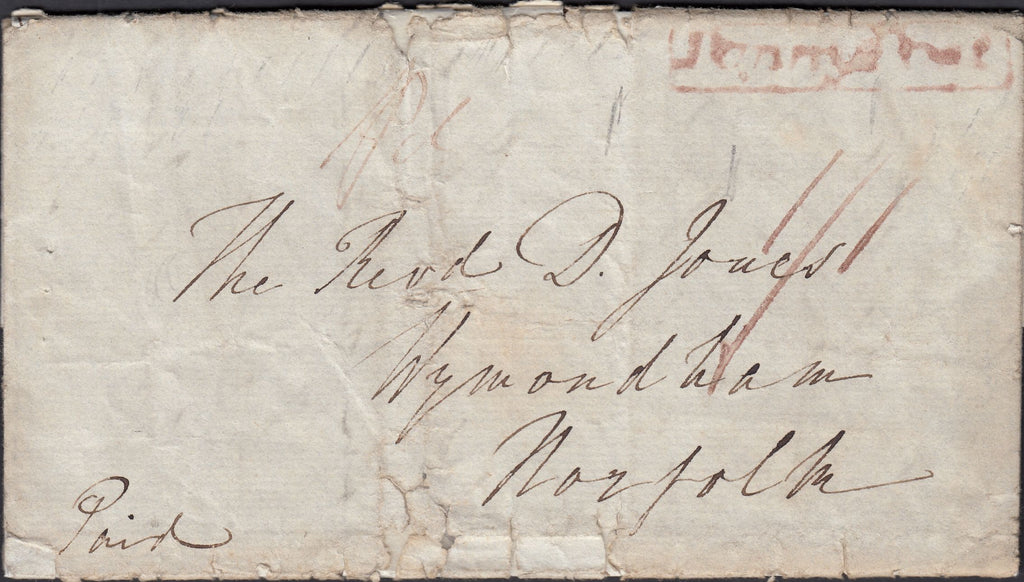 The Revd D. Jones
Wymondham
Norfolk
Paid